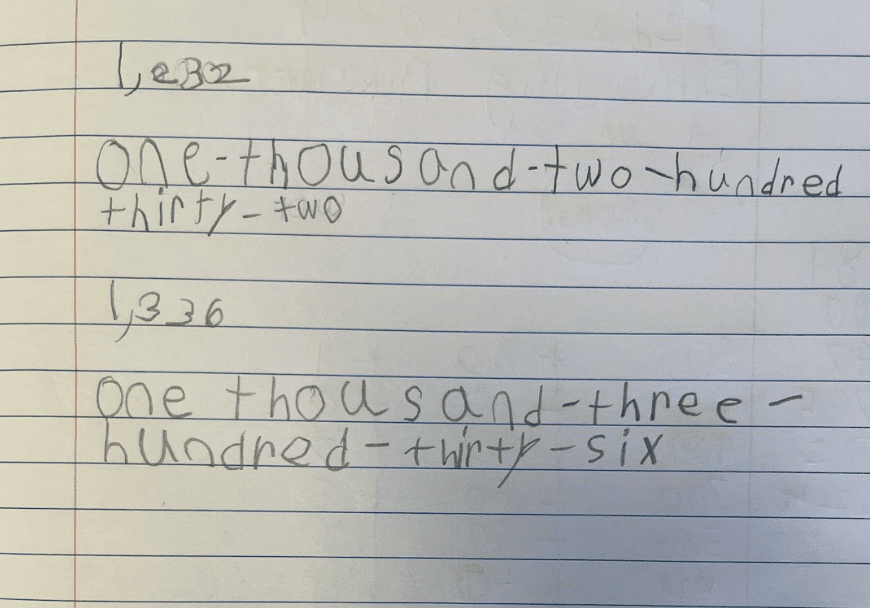 1,232
one-thousand-two-hundred
thirty-two
1,336
one thousand-three-
hundred-thirty-six